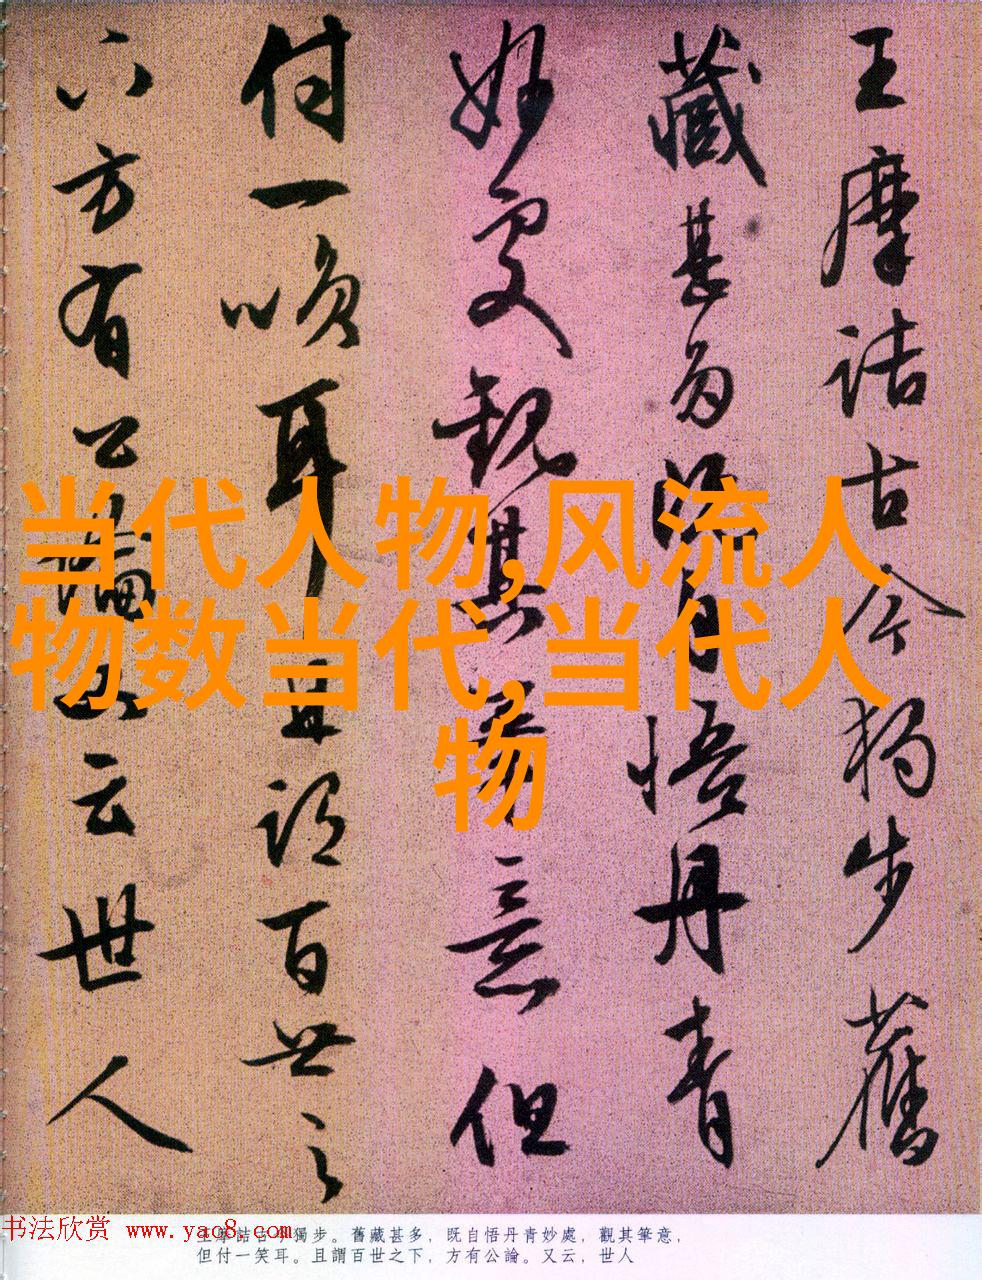 王摩诘古今獨步舊
藏甚多既自悟丹青
妙處觀其筆意但
付一笑耳且謂百世之
下方有公論又云世人
当代人物,风流人
物数当代,当代人
物
书法欣赏 www.yac8.com
王摩詰古今獨步。舊藏甚多，既自悟丹青妙處，觀其筆意，
但付一笑耳。且謂百世之下，方有公論。又云，世人